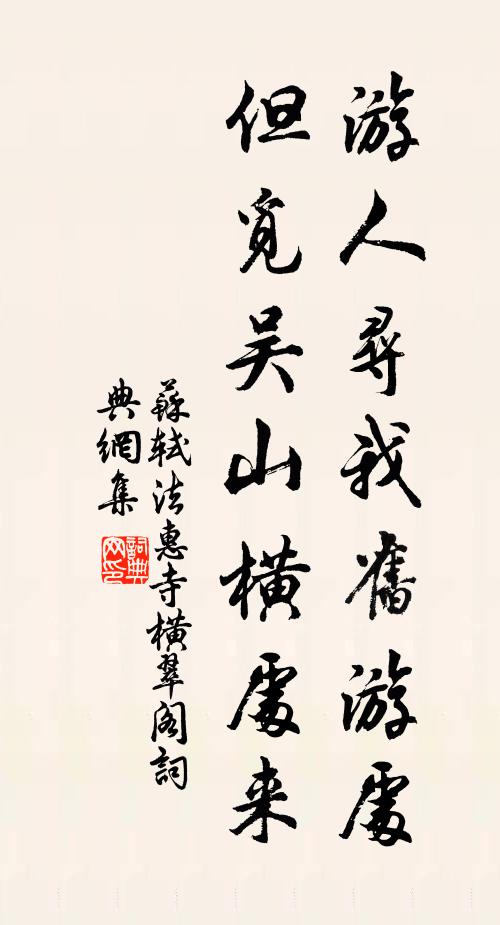 游人尋我舊游處
但覓吴山橫處来
蘇軾法惠寺橫翠阁詞
典網集
詞典网印